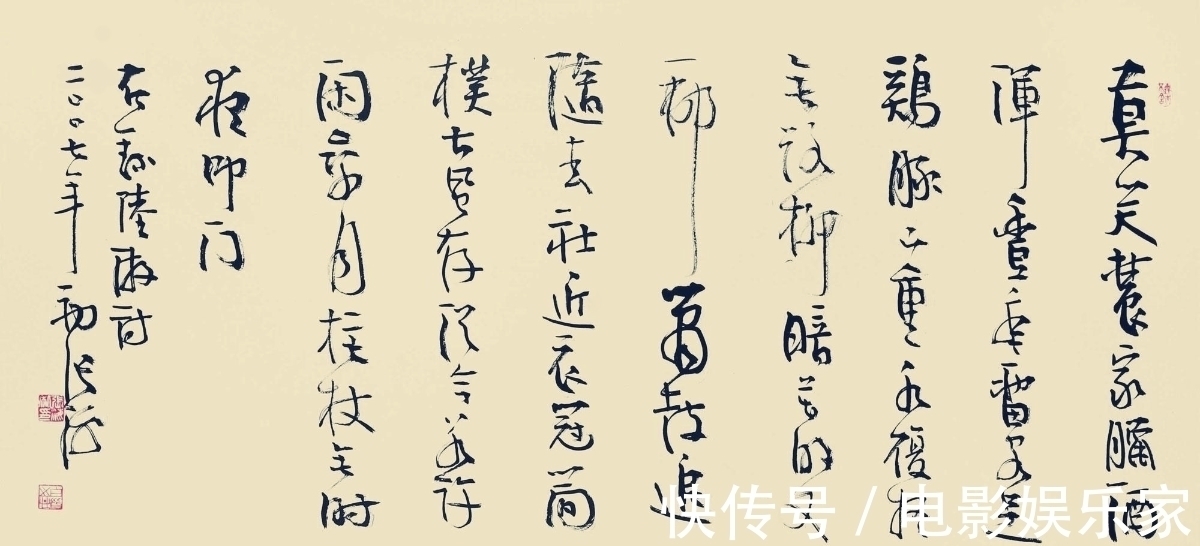 莫笑農家臘酒
渾豐年留客足
鷄豚山重水復疑
無路柳暗花明又
一邨簫鼓追
隨春社近衣冠簡
樸古風存從今若許
閑乘月拄杖無時
夜叩門
右錄陸游詩
二〇〇七年 張海
快传号 / 电影娱乐家